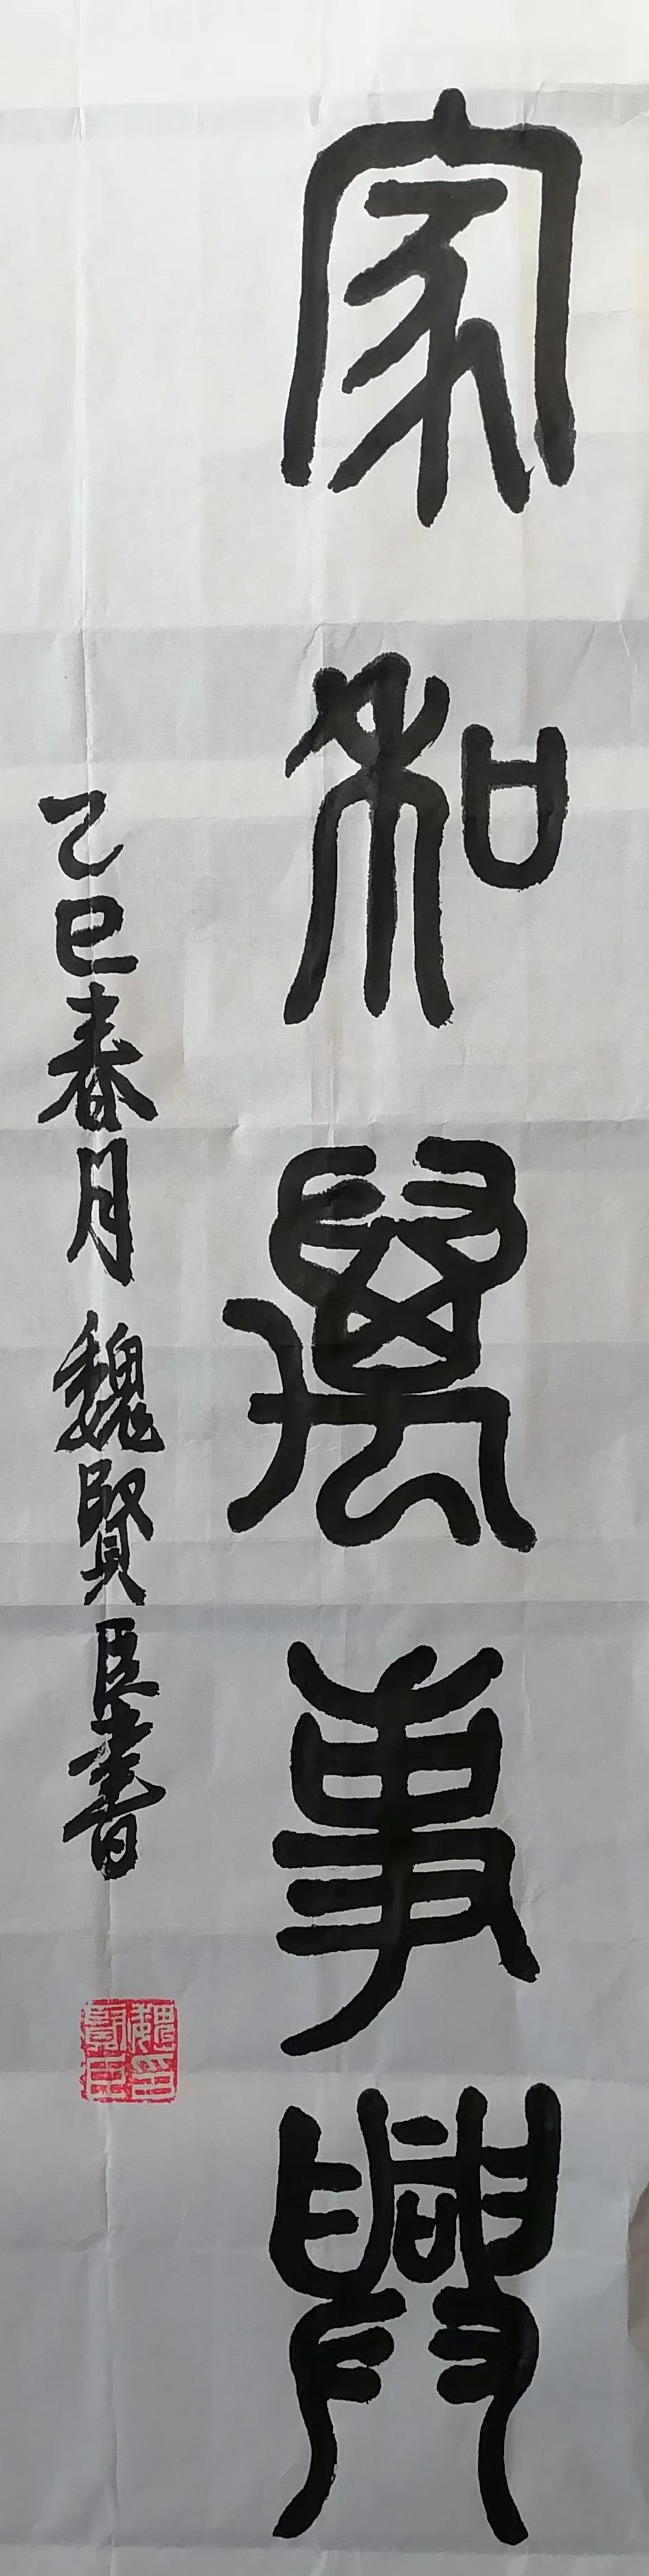 家和萬事興
乙巳春月魏賢臣書
魏賢臣印